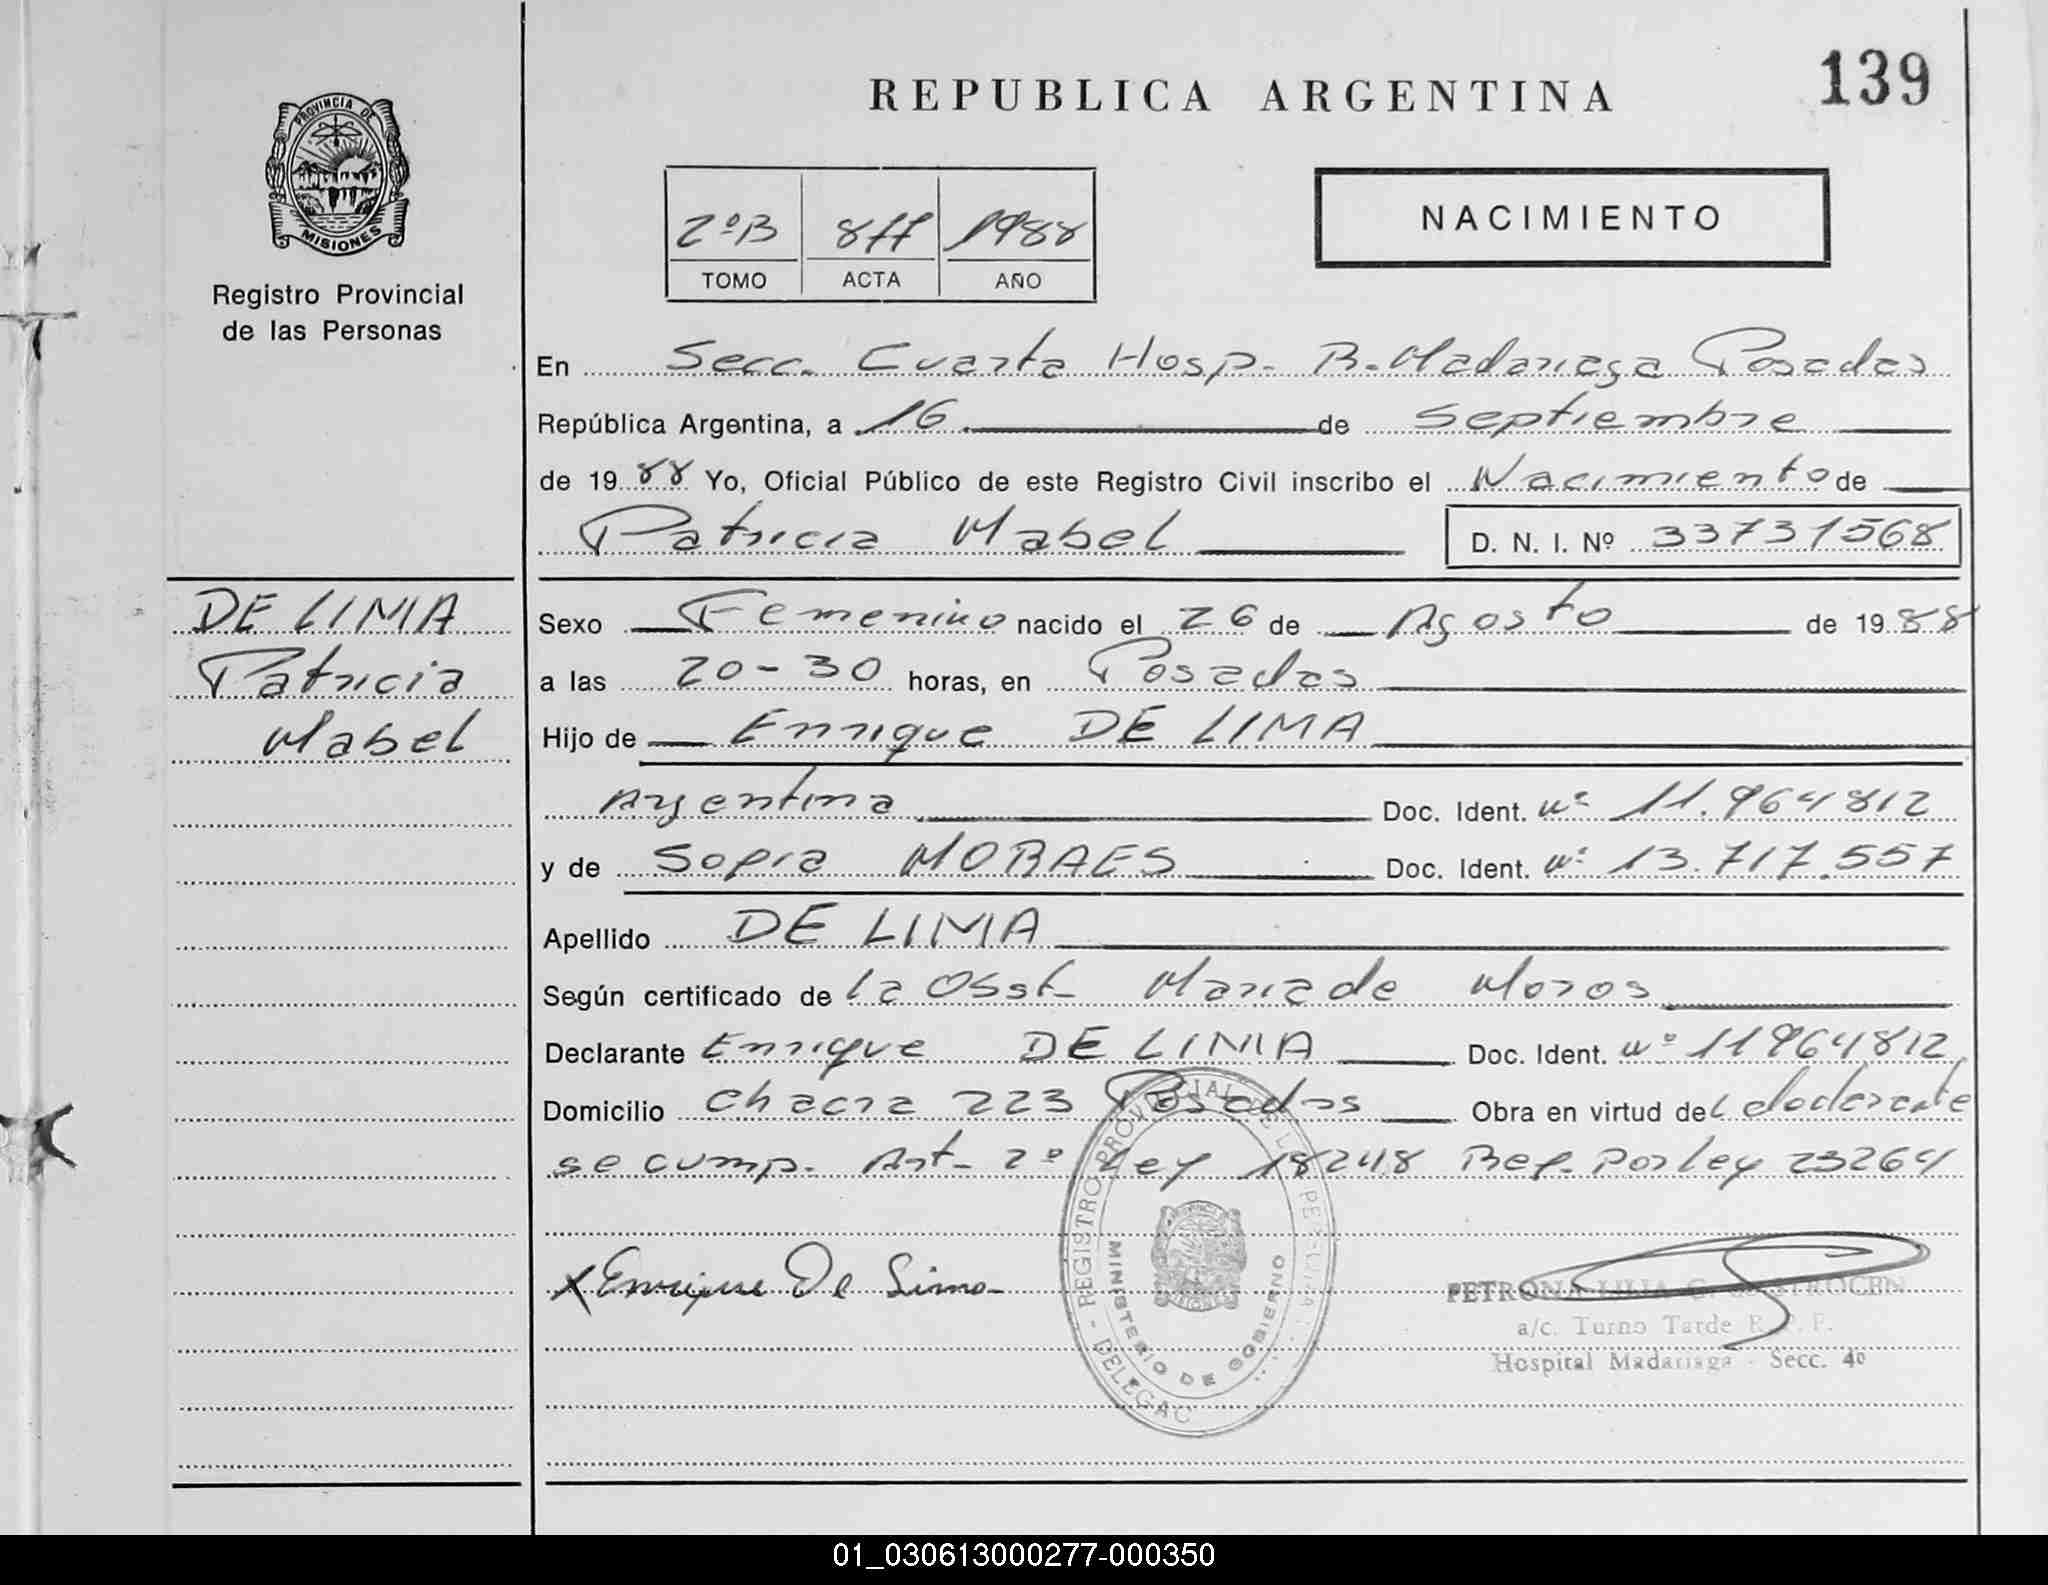 REPUBLICA ARGENTINA
139
PROVINCIA DE
MISIONES
Registro Provincial
de las Personas
2ºB 877 1988
TOMO ACTA AÑO
NACIMIENTO
En Secc. Cuarta Hosp. R. Madariaga Posadas
República Argentina, a 16 de Septiembre
de 1988 Yo, Oficial Público de este Registro Civil inscribo el Nacimiento de
Patricia Mabel D. N. I. Nº 33731568
DE LIMA
Patricia
Mabel
Sexo Femenino nacido el 26 de Agosto de 1988
a las 20-30 horas, en Posadas
Hijo de Enrique DE LIMA
Argentina Doc. Ident. Nº 11.964812
y de Sofia MORAES Doc. Ident. Nº 13.717.557
Apellido DE LIMA
Según certificado de la Obst. Maria de Moros
Declarante Enrique DE LIMA Doc. Ident. Nº 11964812
Domicilio Chacra 223 Posadas Obra en virtud del
se cump. Art. 2º Ley 18248 Ref. Por Ley 23264
X Enrique De Lima
REGISTRO PROVINCIAL DE LAS PERSONAS - DELEGAC
MINISTERIO DE GOBIERNO
PETRONA LILIA C.
a/c. Turno Tarde R. P. P.
Hospital Madariaga - Secc. 4º
01_030613000277-000350